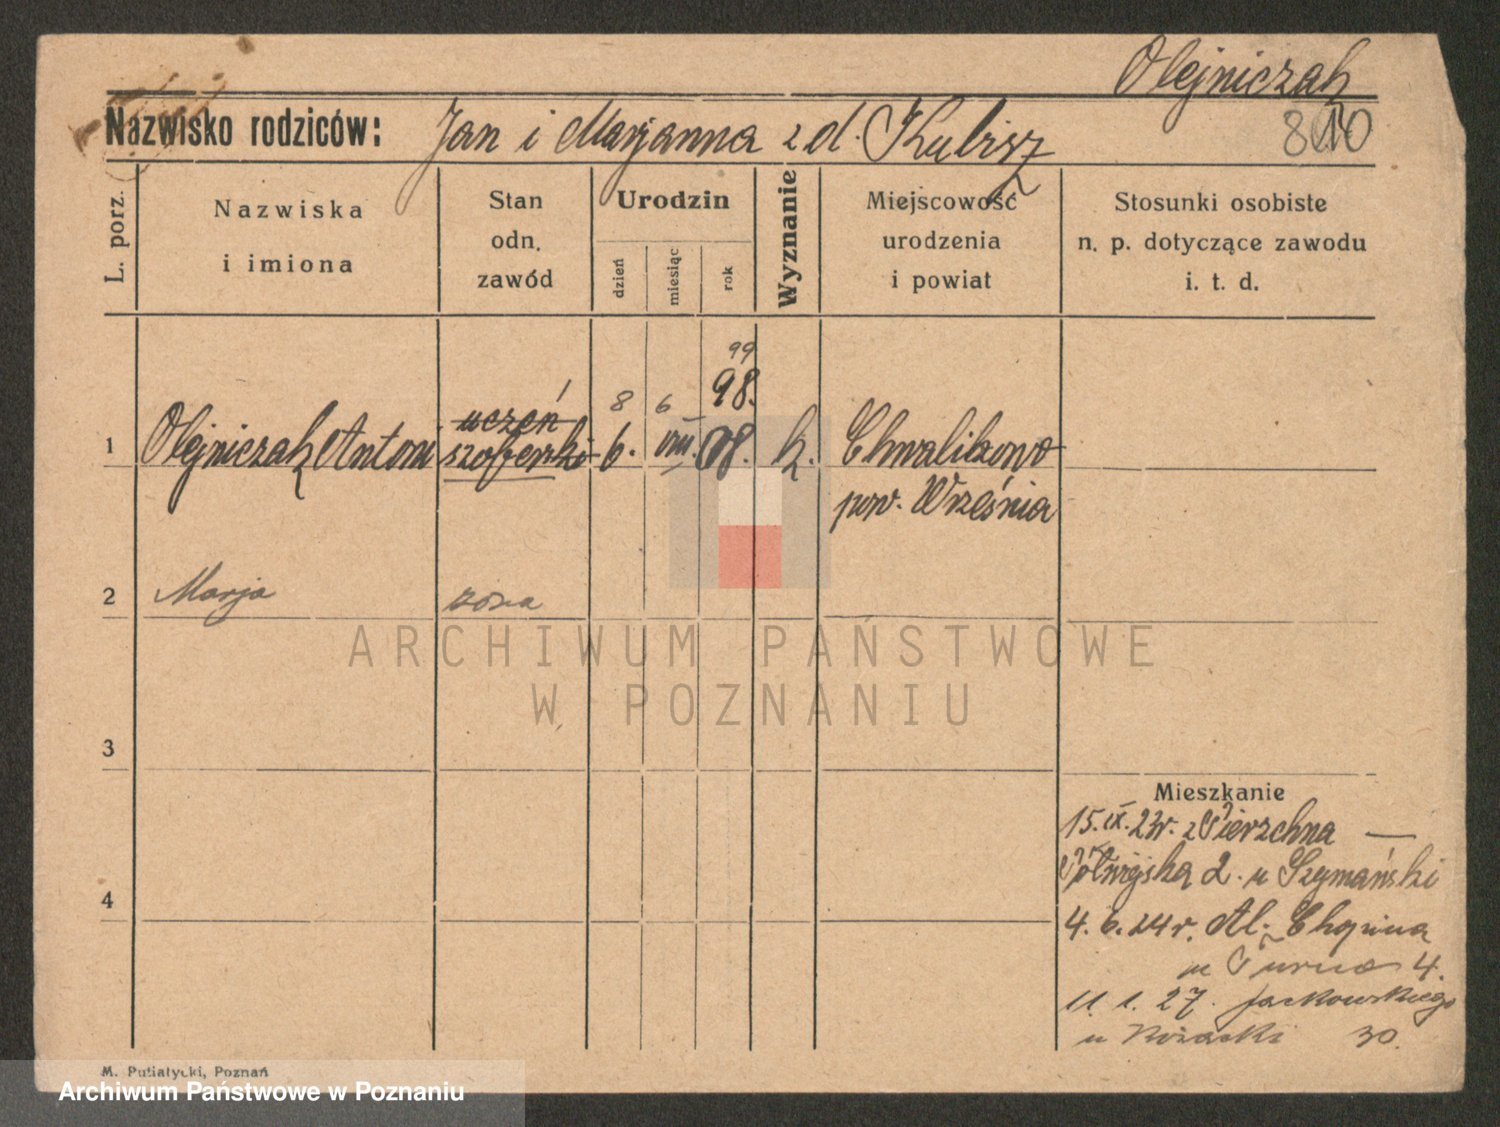 Olejniczak
Nazwisko rodziców: Jan i Marjanna z d. Kubisz
L. porz.
Nazwiska
i imiona
Stan
odn.
zawód
Urodzin
dzień
miesiąc
rok
Wyznanie
Miejscowość
urodzenia
i powiat
Stosunki osobiste
n. p. dotyczące zawodu
i. t. d.
99
8 6 98.
uczeń
1 Olejniczak Antoni szoferski 6. VIII. k. Chwalibogowo
pow. Września
2 Marja żona
ARCHIWUM PAŃSTWOWE
W POZNANIU
3
Mieszkanie
15.IX.23r. z Wierzchna —
Półwiejska 2. u Szymański
4
4.6.24r. Al. Chopina
u 4.
11.1.27. Jackowskiego
u 30.
M. Putiatycki, Poznań
Archiwum Państwowe w Poznaniu